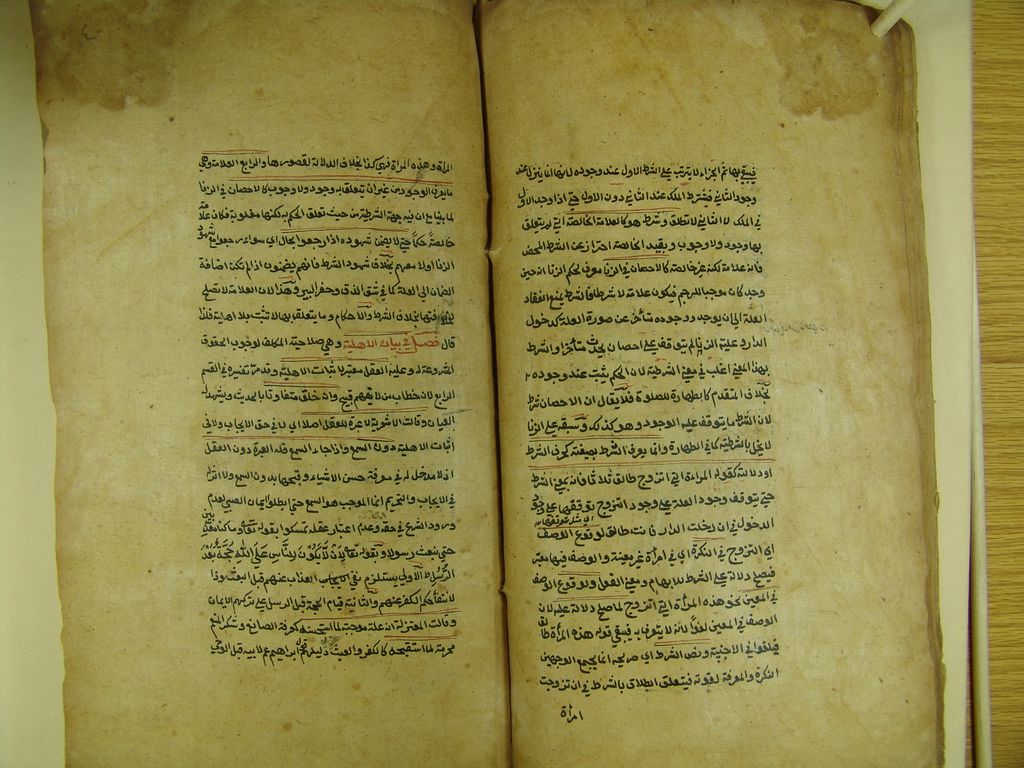 فيبقى بهما ثم الجزاء لا يترتب على الشرط الاول عند وجوده لانها انما ينزل عند
وجود الثاني فيشترط الملك عند الثاني دون الاول حتى اذا وجد الاول
في الملك لا الثاني لا تطلق وشرط هو كالعلامة الخالصة التي لم يتعلق
بها وجود ولا وجوب وبقيد الخالصة احتراز عن الشرط المحض
فانه علامة لكنه غير خالصة كالاحصان في الزنا معرف لحكم الزنا انه حين
وجد كان موجبا للرجم فيكون علامة لا شرطا فالشرط يمنع انعقاد
العلة الى ان يوجد ووجوده متأخر عن صورة العلة كدخول
الدار وعلية الزنا لم يتوقف على احصان يحدث متأخرا والشرط
بهذا المعنى اغلب في معنى الشرطية لان الحكم يثبت عند وجوده
بخلاف المتقدم كالطهارة للصلوة فلا يقال ان الاحصان شرط
لان الشرط ما يتوقف عليه الوجود وهو كذلك وسبقه على الزنا
لا يخل بالشرطية كما في الطهارة وانما يعرف الشرط بصيغته كحرف الشرط
او دلالة كقوله المراة التي اتزوج طالق ثلاثا فانه بمعنى الشرط
حتى يتوقف وجود العلة على وجود التزوج توقفها على
الدخول في ان دخلت الدار فانت طالق لوقوع الوصف
اي التزوج في النكرة اي في امرأة غير معينة والوصف فيها معتبر
فيصلح دلالة على الشرط للابهام ومعنى الفعل ولو وقع الوصف
في المعين نحو هذه المرأة التي اتزوج لما صلح دلالة على لان
الوصف في المعين لغو لانه لا يتعرف به فيبقى قوله هذه المرأة طالق
فيلغو في الاجنبية ونص الشرط اي صريحه انما يجمع الوجهين
النكرة والمعرفة لقوته فيتعلق الطلاق بالشرط في ان تزوجت
امرأة
المرأة وهذه المراة فهي كذا بخلاف الدلالة لقصورها والرابع العلامة وهي
ما يعرف الوجود من غير ان يتعلق به وجود ولا وجوب كالاحصان في الزنا
لما بينا ان فيه جهة الشرطية من حيث تعلق الحكم به لكنها مغلوبة فكان علامة
خالصة حكما حتى لا يضمن شهوده اذا رجعوا بحال اي سواء رجعوا مع شهود
الزنا او لا معهم بخلاف شهود الشرط فانهم يضمنون اذا لم تكن اضافة
الضمان الى العلة كما في شق الزق وحفر البير وهذا لان العلامة لا تصلح
بخلاف الشرط والاحكام وما يتعلق بها لا تثبت بلا اهلية فلذا
قال فصل في بيان الاهلية وهي صلاحية المكلف لوجوب الحقوق
المشروعة له وعليه العقل معتبر لاثبات الاهلية وقد مر تفسيره في القسم
الرابع لان خطاب من لا يفهم قبيح وانه خلق متفاوتا بالحديث ويشهد له
العيان وقالت الاشعرية لا عبرة للعقل اصلا اي لا في حق الايجاب ولا في
اثبات الاهلية دون السمع واذا جاء السمع فله العبرة دون العقل
اذ لا مدخل له في معرفة حسن الاشياء وقبحها بدون السمع ولا اثر له
في الايجاب والتحريم انما الموجب هو السمع حتى ابطلوا ايمان الصبي لعدم
ورود الشرع في حقه وعدم اعتبار عقله تمسكوا بقوله تعالى وما كنا معذبين
حتى نبعث رسولا وبقوله تعالى لئلا يكون للناس على الله حجة بعد
الرسل الاولى يستلزم نفي الايجاب العذاب عنهم قبل البعثة وذا
لانتفاء حكم الكفر عنهم والثانية قيام الحجة قبل الرسل على تركهم الايمان
وقالت المعتزلة انه علة موجبة لما استحسنه كمعرفة الصانع وشكر المنعم
محرمة لما استقبحه كالكفر والعبث دليله قصة ابراهيم عم لابيه قبل الوحي